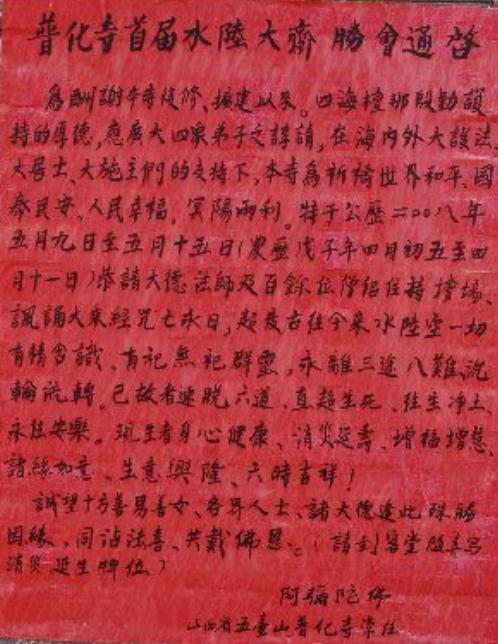 普化寺首届水陸大齋勝會通啓
為酬謝本寺復修、擴建以來。四海檀那殷勤護
持的厚德，應廣大四衆弟子之諄請，在海内外大護法、
大居士、大施主們的支持下，本寺爲祈禱世界和平、國
泰民安、人民幸福，冥陽兩利。特于公歷二00八年
五月九日至五月十五日(農歷戊子年四月初五至四
月十一日)恭請大德法師及百餘位僧侣住持壇場、
諷誦大乘經咒七永日，超度古往今來水陸空一切
有情含識、有祀無祀群靈，永離三途八難，沉
輪流轉。已故者速脱六道、直超生死、往生净土、
永住安樂。現生者身心健康、消災延壽、增福增慧、
諸緣如意、生意興隆、六時吉祥！
誠望十方善男善女、各界人士、諸大德逢此殊勝
因緣，同沾法喜、共戴佛恩。(請到客堂随喜寫
消災延生牌位)
阿彌陀佛
山西省五臺山普化寺常住